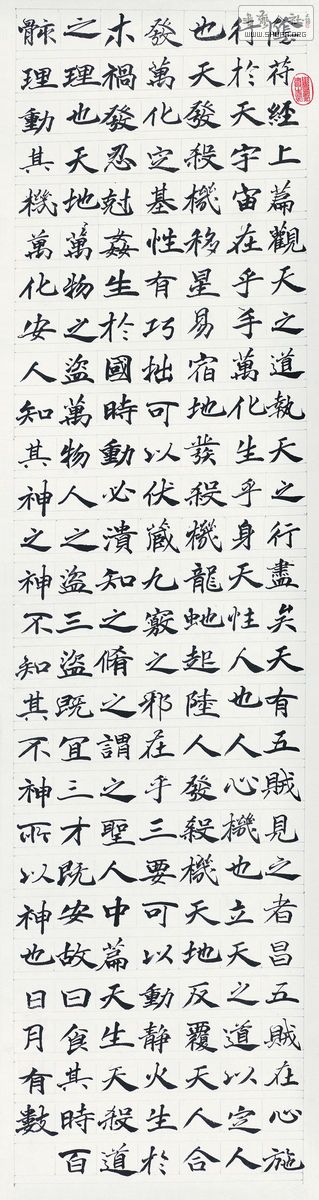 陰符經上篇觀天之道執天之行盡矣天有五賊見之者昌五賊在心施
行於天宇宙在乎手萬化生乎身天性人也人心機也立天之道以定人
也天發殺機移星易宿地發殺機龍虵起陸人發殺機天地反覆天人合
發萬化定基性有巧拙可以伏藏九竅之邪在乎三要可以動静火生於
木禍發忍尅姦生於國時動必潰知之脩之謂之聖人中篇天生天殺道
之理也天地萬物之盜萬物人之盜三盜既宜三才既安故曰食其時百
骸理動其機萬化安人知其神之神不知其不神所以神也日月有數